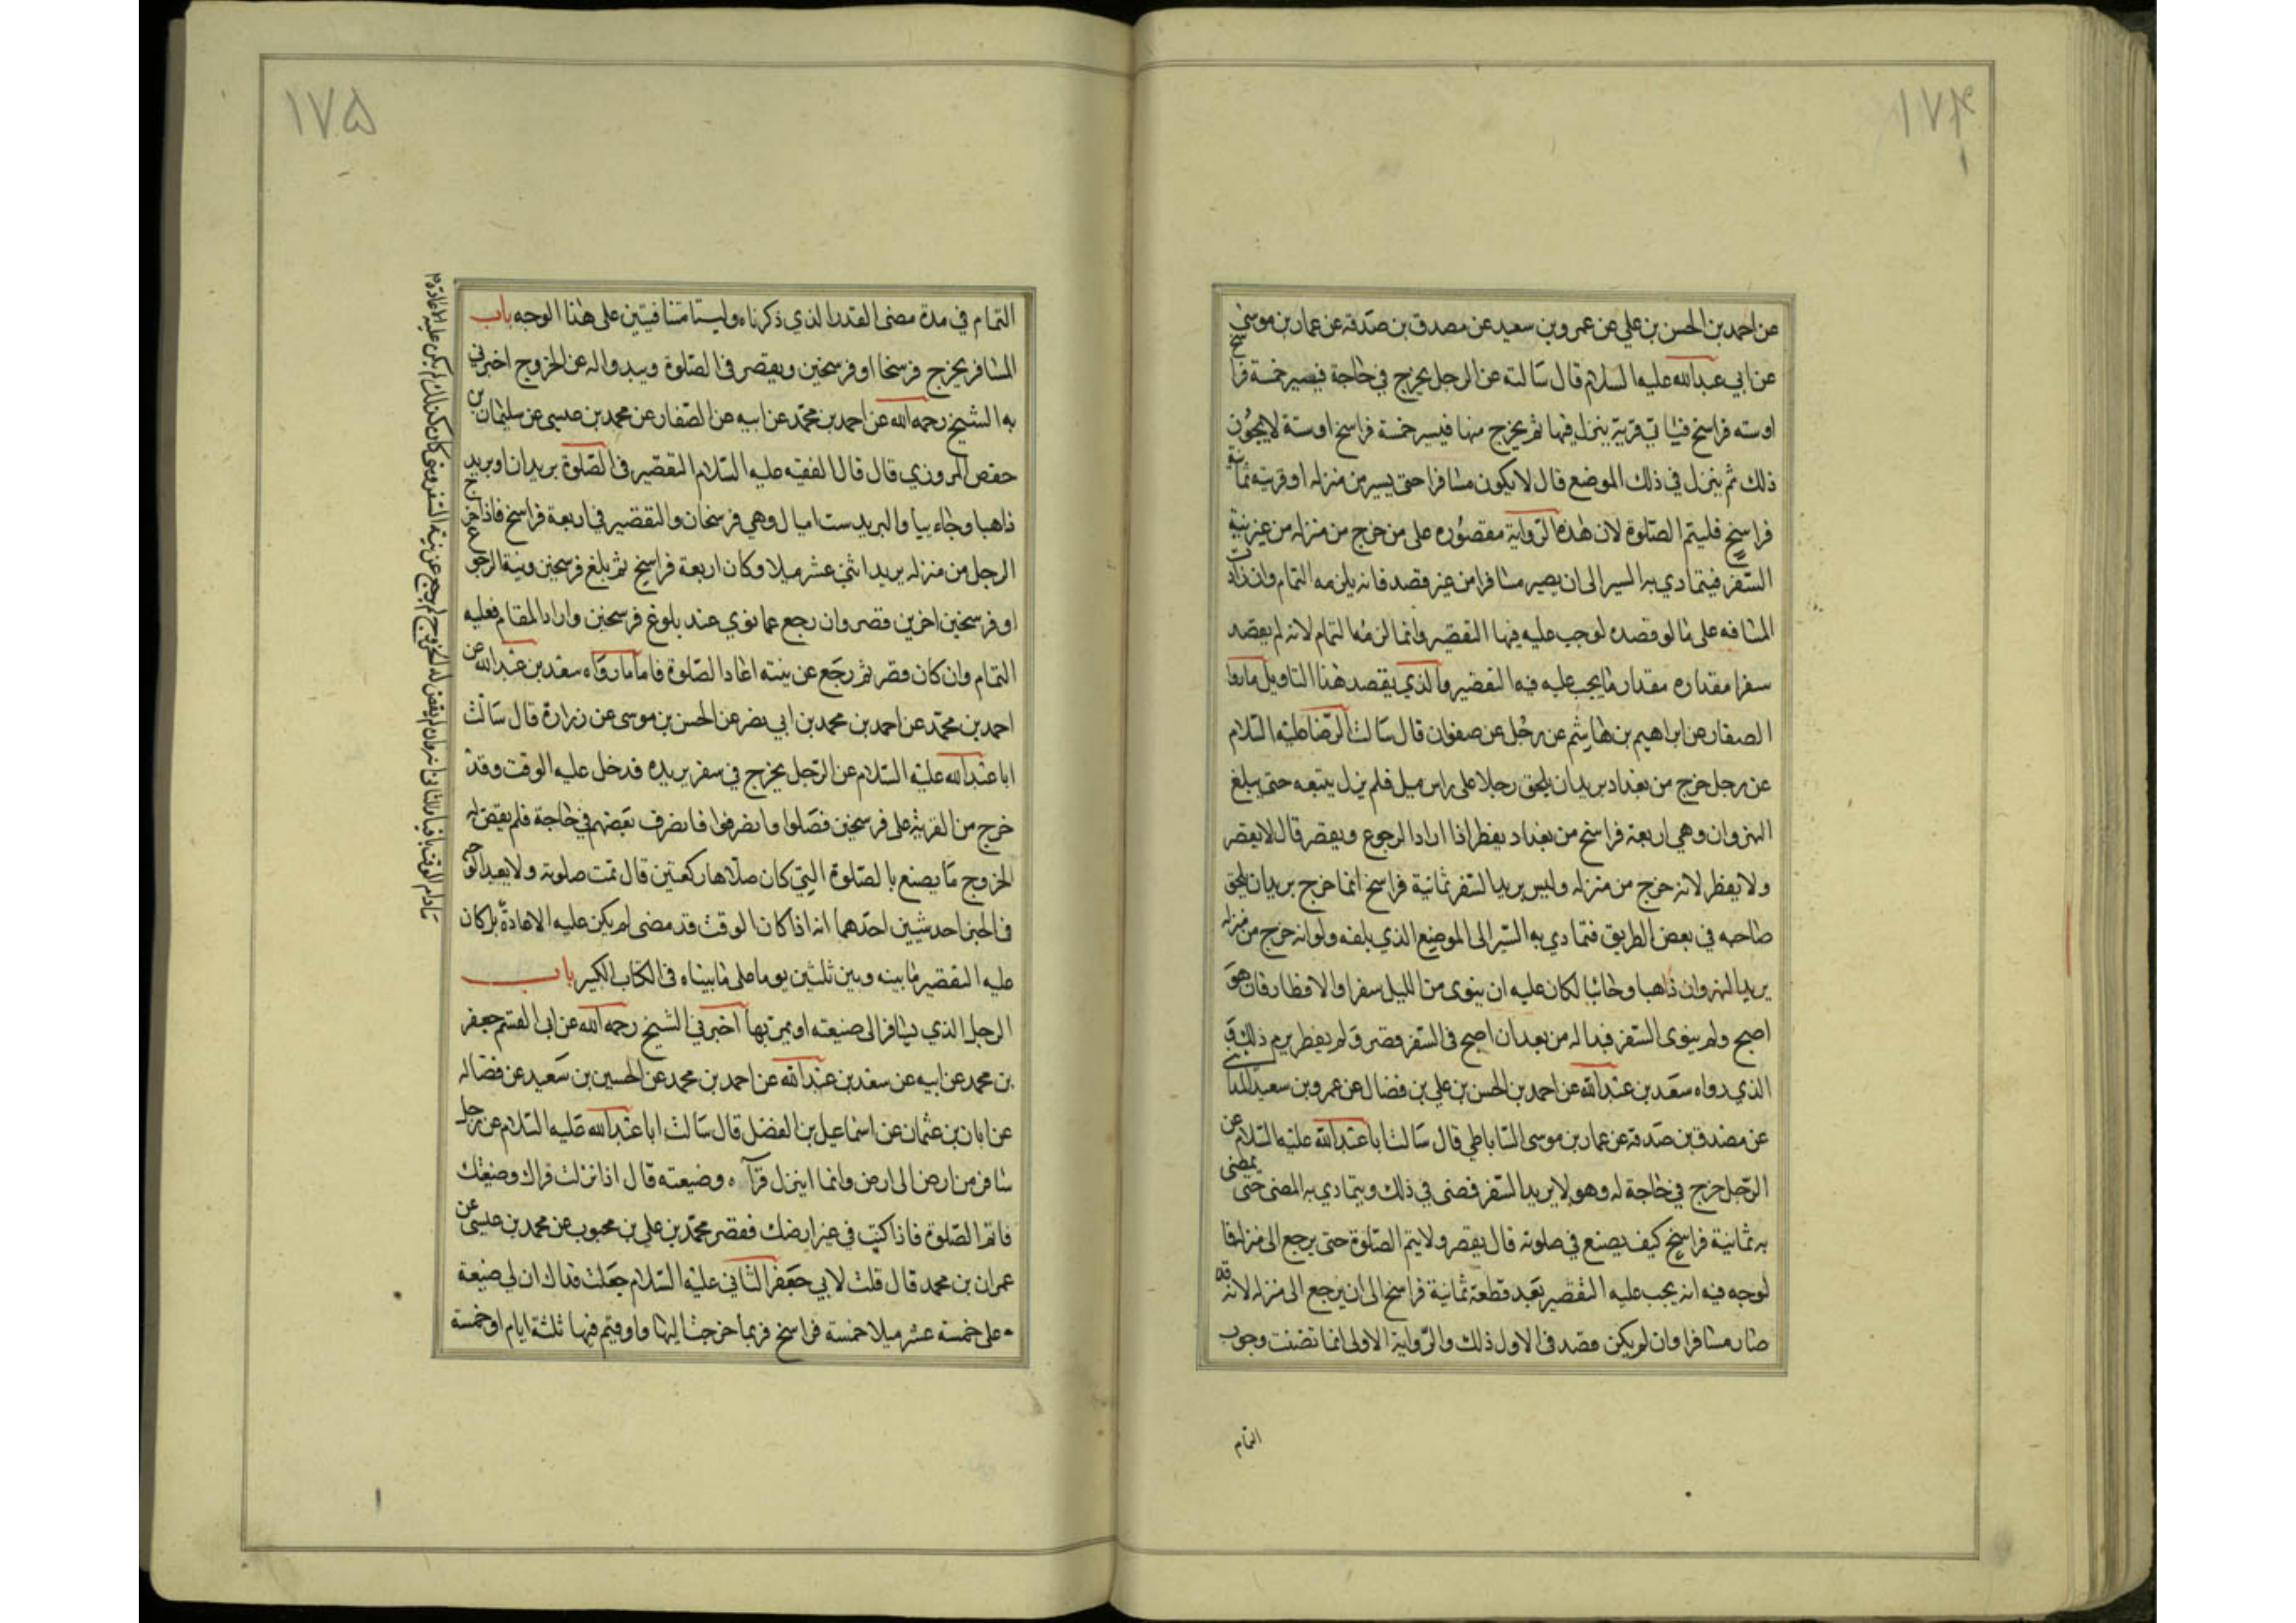 ۱۷۴
عن احمد بن الحسن بن علي عن عمرو بن سعيد عن مصدق بن صدقه عن عمار بن موسى
عن ابي عبدالله عليه السلام قال سالته عن الرجل يخرج في حاجة فيصير خمسة فرا سخ
اوسته فراسخ فياتي قرية ينزل فيها ثم يخرج منها فيسير خمسة فراسخ اوستة لايجوزن
ذلك ثم ينزل في ذلك الموضع قال لايكون مسافرا حتى يسير من منزله اوقريته ثمانية
فراسخ فليتم الصلوة لان هذه الرواية مقصوره على من خرج من منزله من غير نية
السفر فيتمادي به السير الى ان يصير مسافرا من غير قصد فانه يلزمه التمام وان زادت
المسافه على ما لو قصده لوجب عليه فيها التقصير وانما لزمه التمام لانه لم يقصد
سفرا مقداره مقدار ما يجب عليه فيه التقصير والذي يقصد هذا التاويل مارواه
الصفار عن ابراهيم بن هاشم عن رجل عن صفوان قال سالت الرضا عليه السلام
عن رجل خرج من بغداد يريد ان يلحق رجلا على راس ميل فلم يزل يتبعه حتى بلغ
النهروان وهي اربعة فراسخ من بغداد يفطر اذا اراد الرجوع ويقصر قال لايقصر
ولا يفطر لانه خرج من منزله وليس يريد السفر ثمانية فراسخ انما خرج يريد ان يلحق
صاحبه في بعض الطريق فتمادي به السير الى الموضع الذي بلغه ولو انه خرج من منزله
يريد النهروان ذاهبا وجائيا لكان عليه ان ينوى من الليل سفرا والافطار فان هو
اصبح ولم ينوى السفر فبدا له من بعد ان اصبح في السفر قصر ولم يفطر يومه ذلك
الذي رواه سعد بن عبدالله عن احمد بن الحسن بن علي بن فضال عن عمرو بن سعيد المدايني
عن مصدق بن صدقه عن عمار بن موسى الساباطي قال سالت اباعبدالله عليه السلام عن
الرجل خرج في حاجة له وهو لايريد السفر فمضى في ذلك ويتمادي به المضى حتى يمضى
به ثمانية فراسخ كيف يصنع في صلوته قال يقصر ولا يتم الصلوة حتى يرجع الى منزله فا
لوجه فيه انه يجب عليه التقصير بعد قطعة ثمانية فراسخ الى ان يرجع الى منزله لانه قد
صار مسافرا وان لم يكن قصد في الاول ذلك والرواية الاولى انما تضنت وجوب
التمام
۱۷۵
التمام في مدة مضى القدر الذي ذكرناه وليستا متنافيتين على هذا الوجه باب
المسافر يخرج فرسخا او فرسخين ويقصر في الصلوة ويبدواله عن الخروج اخبرني
به الشيخ رحمه الله عن احمد بن محمد عن ابيه عن الصفار عن محمد بن عيسى عن سليمان بن
حفص المروزي قال قال الفقيه عليه السلام التقصير في الصلوة بريدان او بريد
ذاهبا وجاءييا والبريد ست اميال وهي فرسخان والتقصير في اربعة فراسخ فاذا خرج
الرجل من منزله يريد اثنى عشر ميلا وكان اربعة فراسخ ثم بلغ فرسخين ونية الرجوع
او فرسخين اخرين قصر وان رجع عما نوي عند بلوغ فرسخين واراد المقام فعليه
التمام وان كان قصر ثم رجع عن نيته اعاد الصلوة فاما مارواه سعد بن عبدالله عن
احمد بن محمد عن احمد بن محمد بن ابي نصر عن الحسن بن موسى عن زرارة قال سالت
اباعبدالله عليه السلام عن الرجل يخرج في سفر يريده فدخل عليه الوقت وقد
خرج من القرية على فرسخين فصلوا وانصرفوا فانصرف بعضهم في حاجة فلم يقض له
الخروج ما يصنع بالصلوة التي كان صلاها ركعتين قال تمت صلوته ولا يعيد الوجه
في الخبر احد شيين احدهما انه اذا كان الوقت قد مضى لم يكن عليه الاعادة بل كان
عليه التقصير ما بينه وبين ثلثين يوما على ما بيناه في الكتاب الكبير باب
الرجل الذي يسافر الى ضيعته او يمر بها اخبرني الشيخ رحمه الله عن ابي القسم جعفر
بن محمد عن ابيه عن سعد بن عبدالله عن احمد بن محمد عن الحسين بن سعيد عن فضاله
عن ابان بن عثمان عن اسماعيل بن الفضل قال سالت اباعبدالله عليه السلام عن رجل
سافر من ارض الى ارض وانما ينزل قراه وضيعته قال اذا نزلت قراك وضيعتك
فاتم الصلوة فاذا كنت في غير ارضك فقصر محمد بن علي بن محبوب عن محمد بن عيسى عن
عمران بن محمد قال قلت لابي جعفر الثاني عليه السلام جعلت فداك ان لي ضيعة
على خمسة عشر ميلا خمسة فراسخ فربما خرجت اليها فاقيم فيها ثلثة ايام او خمسة